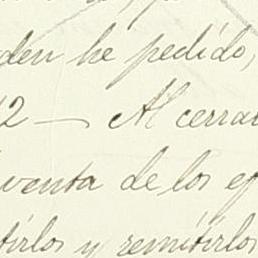 den he pedido,
12 — Al cerrar
venta de los ej
tirlos y remitirlos